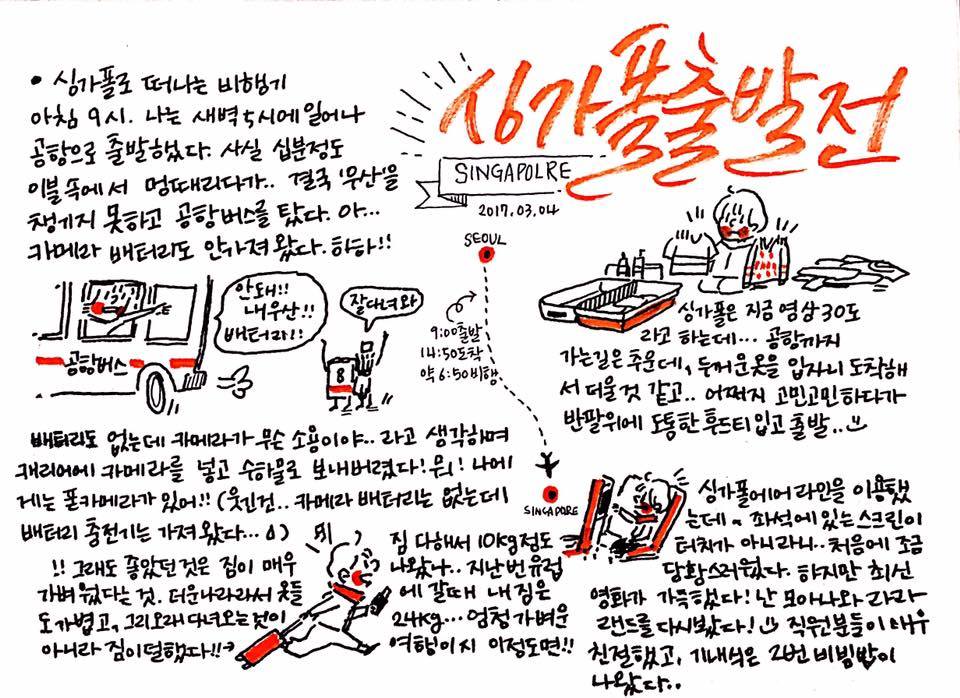 싱가폴출발전
SINGAPOLRE
2017.03.04
• 싱가폴로 떠나는 비행기
아침 9시. 나는 새벽 5시에 일어나
공항으로 출발했다. 사실 십분정도
이불속에서 멍때리다가.. 결국 '우산'을
챙기지 못하고 공항버스를 탔다. 아...
카메라 배터리도 안가져 왔다. 하하!!
공항버스
안돼!!
내우산!!
배터리!!
잘다녀와
8
SEOUL
9:00출발
14:50도착
약 6:50비행
SINGAPORE
싱가폴은 지금 영상 30도
라고 하는데... 공항까지
가는길은 추운데, 두꺼운옷을 입자니 도착해
서 더울것 같고.. 어쩌지 고민고민하다가
반팔위에 도톰한 후드티 입고 출발..
배터리도 없는데 카메라가 무슨 소용이야.. 라고 생각하며
캐리어에 카메라를 넣고 수하물로 보내버렸다! 뭐! 나에
게는 폰카메라가 있어!! (웃긴건.. 카메라 배터리는 없는데
배터리 충전기는 가져 왔다...)
!! 그래도 좋았던 것은 짐이 매우
가벼웠다는 것. 더운나라라서 옷들
도 가볍고, 그리 오래 다녀오는것이
아니라 짐이 덜했다!!
짐 다해서 10kg정도
나왔나.. 지난번 유럽
에 갈때 내 짐은
24kg... 엄청 가벼운
여행이지 이정도면!!
싱가폴에어라인을 이용했
는데 좌석에 있는 스크린이
터치가 아니라니.. 처음에 조금
당황스러웠다. 하지만 최신
영화가 가득했다! 난 모아나와 라라
랜드를 다시봤다! 직원분들이 매우
친절했고, 기내식은 2번 비빔밥이
나왔다..